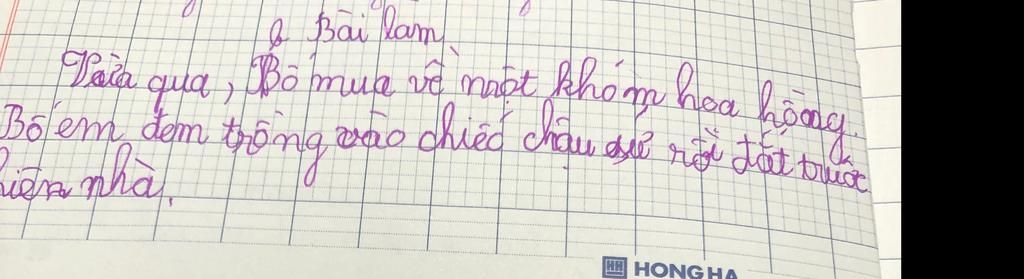 Bài làm
Vừa qua, Bố mua về một khóm hoa hồng.
Bố em đem trồng vào chiếc chậu sứ rồi đặt trước
hiên nhà.
HONG HA